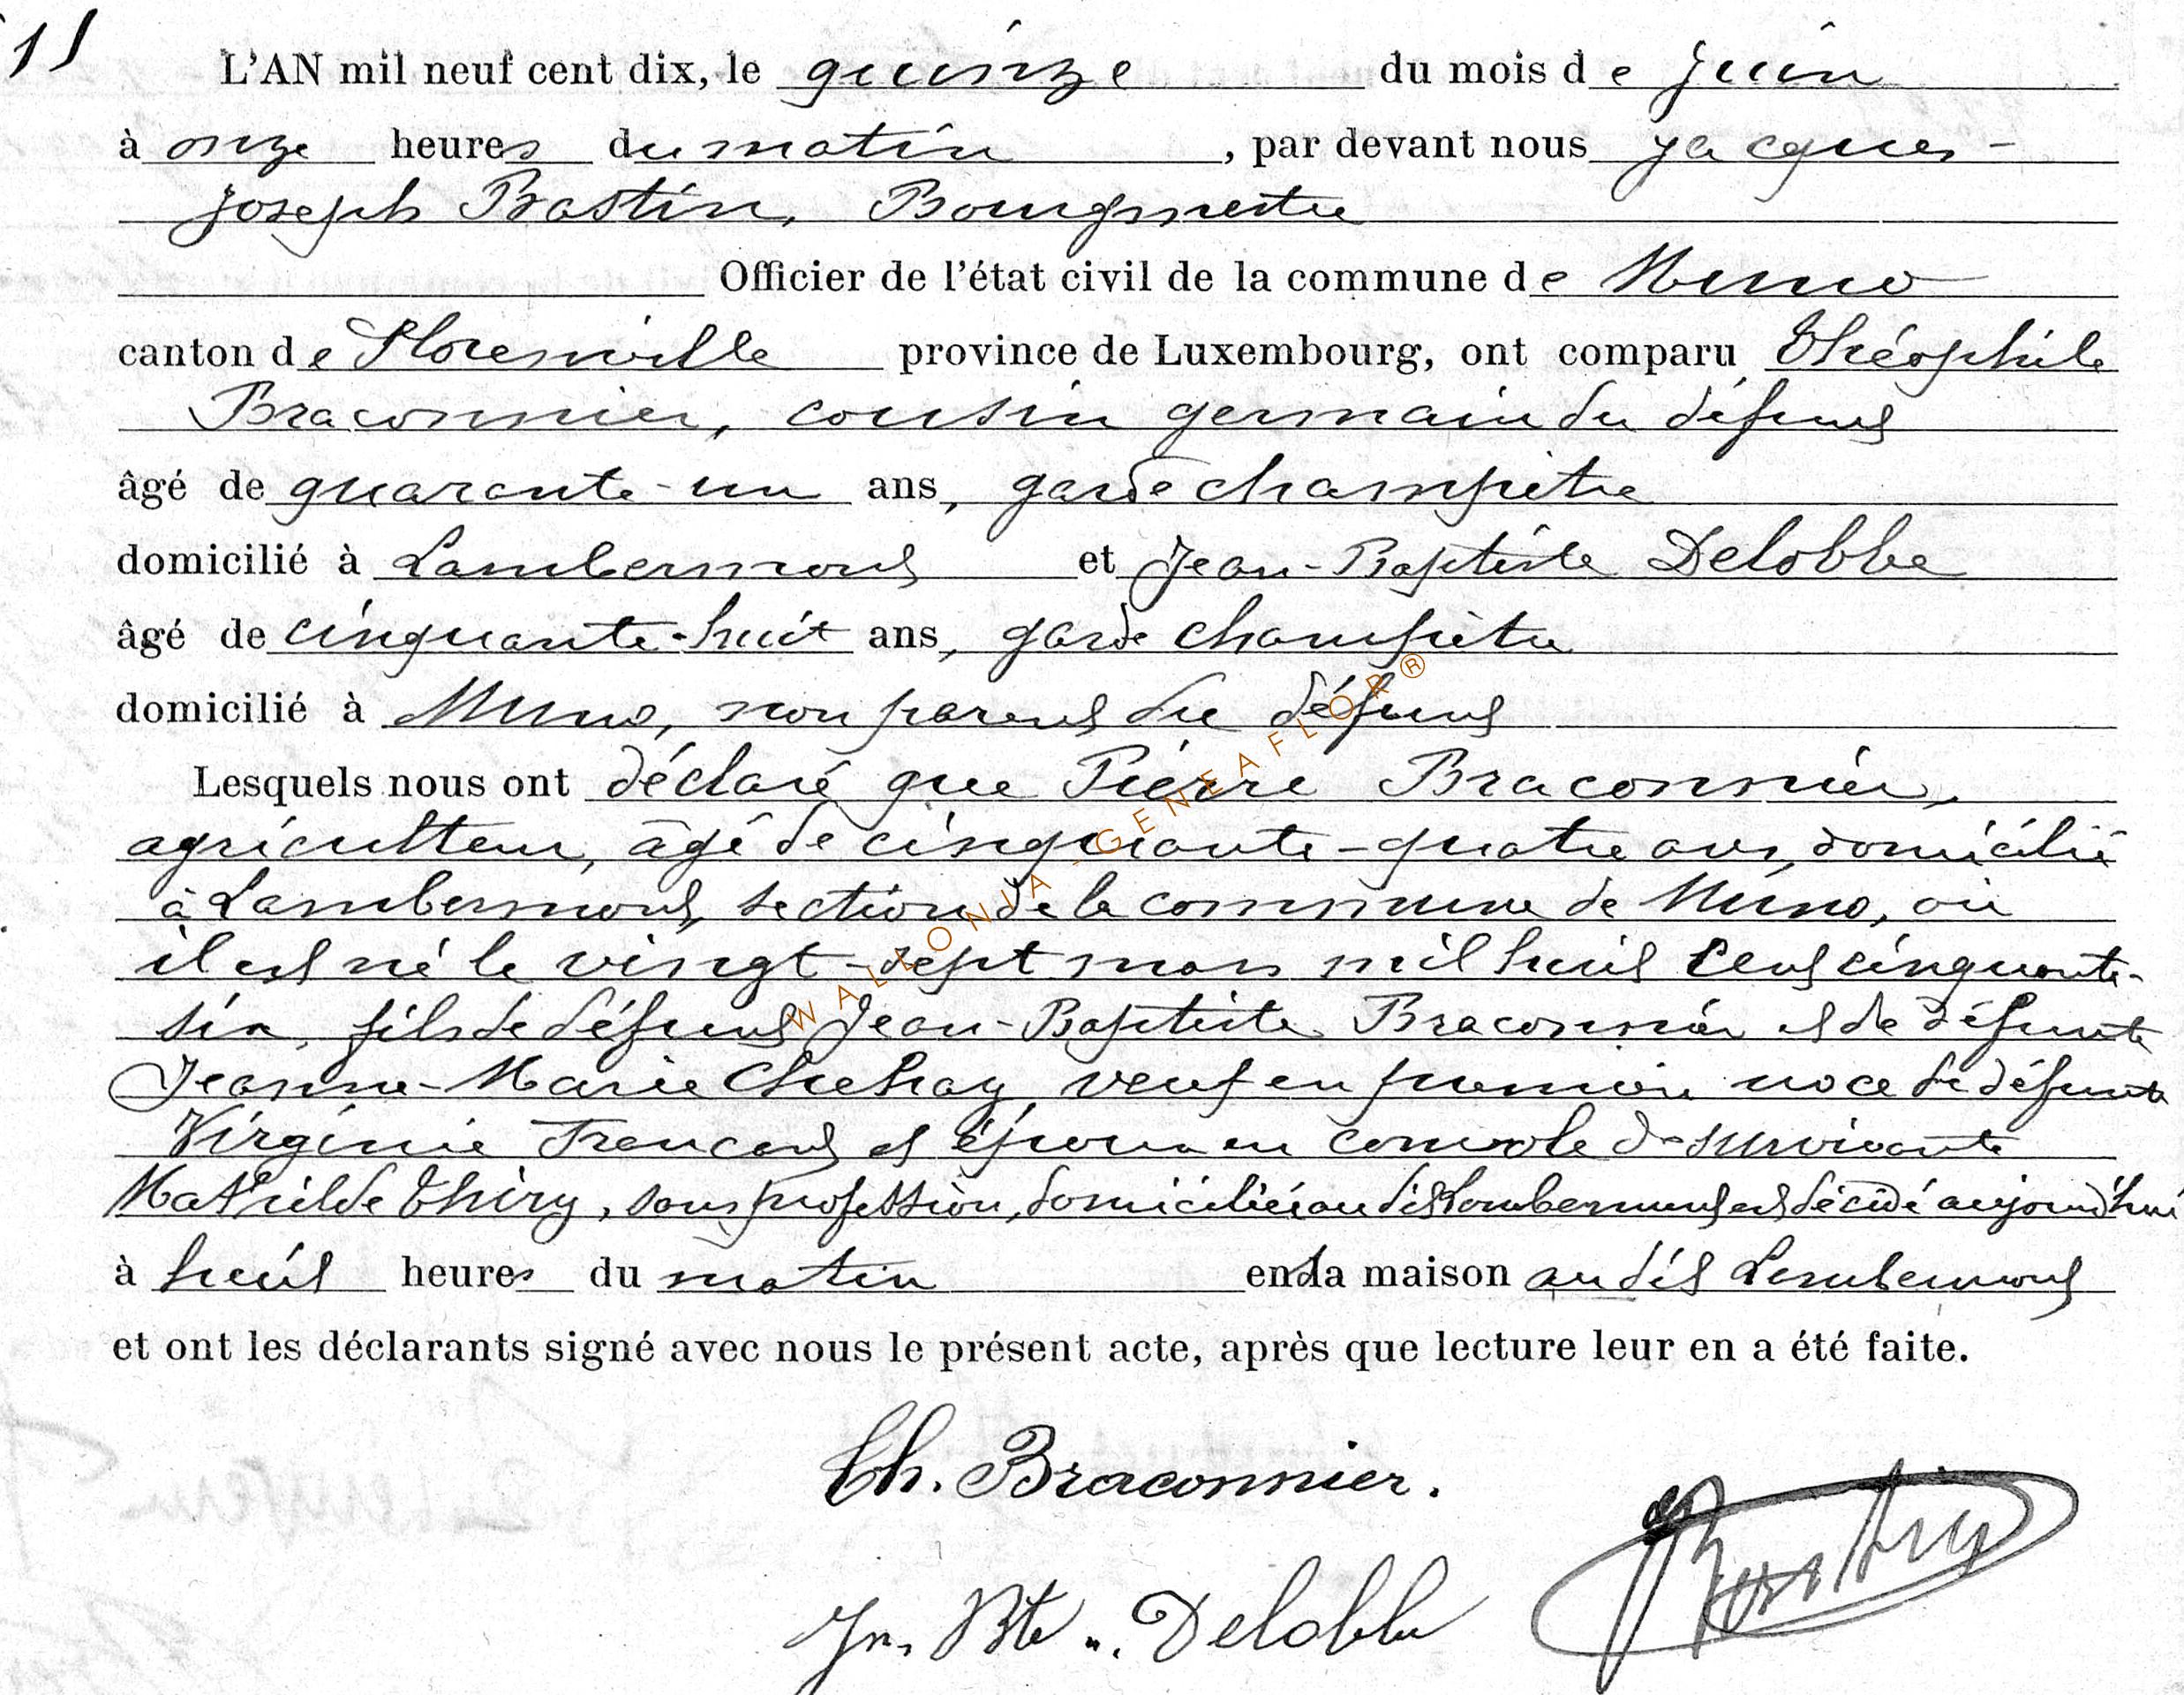 11
L'AN mil neuf cent dix, le quinze du mois de juin
à onze heures du matin, par devant nous Jacques-
Joseph Bastin, Bourgmestre
Officier de l'état civil de la commune de Muno
canton de Florenville province de Luxembourg, ont comparu Théophile
Braconnier, cousin germain du défunt
âgé de quarante-un ans, garde champêtre
domicilié à Lambermont et Jean-Baptiste Delobbe
âgé de cinquante-huit ans, garde champêtre
domicilié à Muno, non parent du défunt
Lesquels nous ont déclaré que Pierre Braconnier,
agriculteur, âgé de cinquante-quatre ans, domicilié
à Lambermont, section de la commune de Muno, où
il est né le vingt-sept mars mil huit cent cinquante-
six, fils de défunt Jean-Baptiste Braconnier et de défunte
Jeanne-Marie Chehay, veuf en première noce de défunte
Virginie et époux en convole de survivante
Mathilde Thiry, sans profession, domiciliée au dit Lambermont est décédé aujourd'hui
à huit heures du matin en sa maison au dit Lambermont
et ont les déclarants signé avec nous le présent acte, après que lecture leur en a été faite.
Th. Braconnier.
Jn. Bte Delobbe
Bastin
WALLONIA-GENEAFLOR®